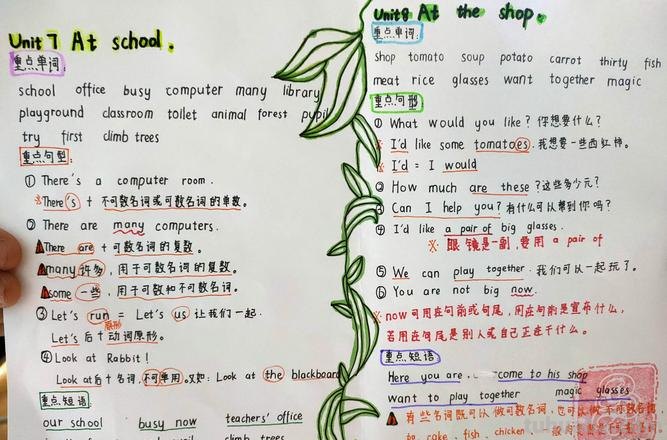 Unit 7 At school.
重点单词:
school office busy computer many library
playground classroom toilet animal forest pupil
try first climb trees
重点句型:
① There's a computer room.
※There's + 不可数名词或可数名词的单数。
② There are many computers.
There are + 可数名词的复数。
many 许多, 用于可数名词的复数。
some 一些, 用于可数和不可数名词。
③ Let's run = Let's us 让我们一起.
原形
Let's 后+动词原形。
④ Look at Rabbit!
Look at后+名词,不可单用。又如: Look at the blackboard
重点短语:
our school busy now teachers' office
climb trees
Unit 8 At the shop.
重点单词:
shop tomato soup potato carrot thirty fish
meat rice glasses want together magic
重点句型
① What would you like? 你想要什么?
※ I'd like some tomatoes. 我想要一些西红柿。
※ I'd = I would
② How much are these? 这些多少元?
③ Can I help you? 有什么可以帮到你吗?
④ I'd like a pair of big glasses.
※ 眼镜是一副,要用 a pair of
⑤ We can play together. 我们可以一起玩了。
⑥ You are not big now.
※now可用在句前或句尾,用在句前是宣布什么,
若用在句尾是别人或自己正在干什么。
重点短语
Here you are. come to his shop
want to play together magic glasses
有些名词既可以做可数名词,也可以做不可数名词
如 cake, fish, chicken